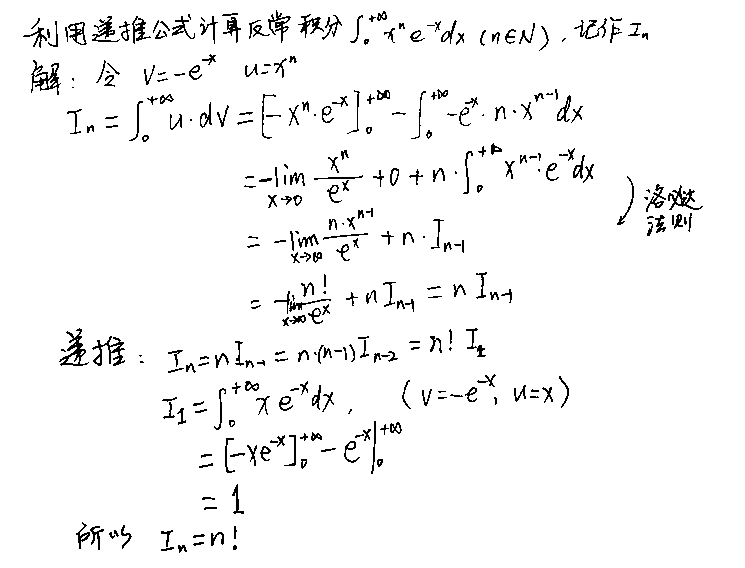 利用递推公式计算反常积分 ∫₀^{+∞} xⁿe^{-x}dx (n∈N),记作 Iₙ
解:令 v=-e^{-x} u=xⁿ
Iₙ = ∫₀^{+∞} u·dv = [-xⁿ·e^{-x}]₀^{+∞} - ∫₀^{+∞} -e^{-x}·n·x^{n-1}dx
= -lim_{x→0} xⁿ/e^x + 0 + n·∫₀^{+∞} x^{n-1}·e^{-x}dx
= -lim_{x→∞} n·x^{n-1}/e^x + n·I_{n-1}
洛必达
法则
= -lim_{x→∞} n!/e^x + nI_{n-1} = nI_{n-1}
递推: Iₙ=nI_{n-1}=n·(n-1)I_{n-2}=n! I₁
I₁=∫₀^{+∞} xe^{-x}dx, (v=-e^{-x}, u=x)
= [-xe^{-x}]₀^{+∞} - e^{-x}|₀^{+∞}
= 1
所以 Iₙ=n!